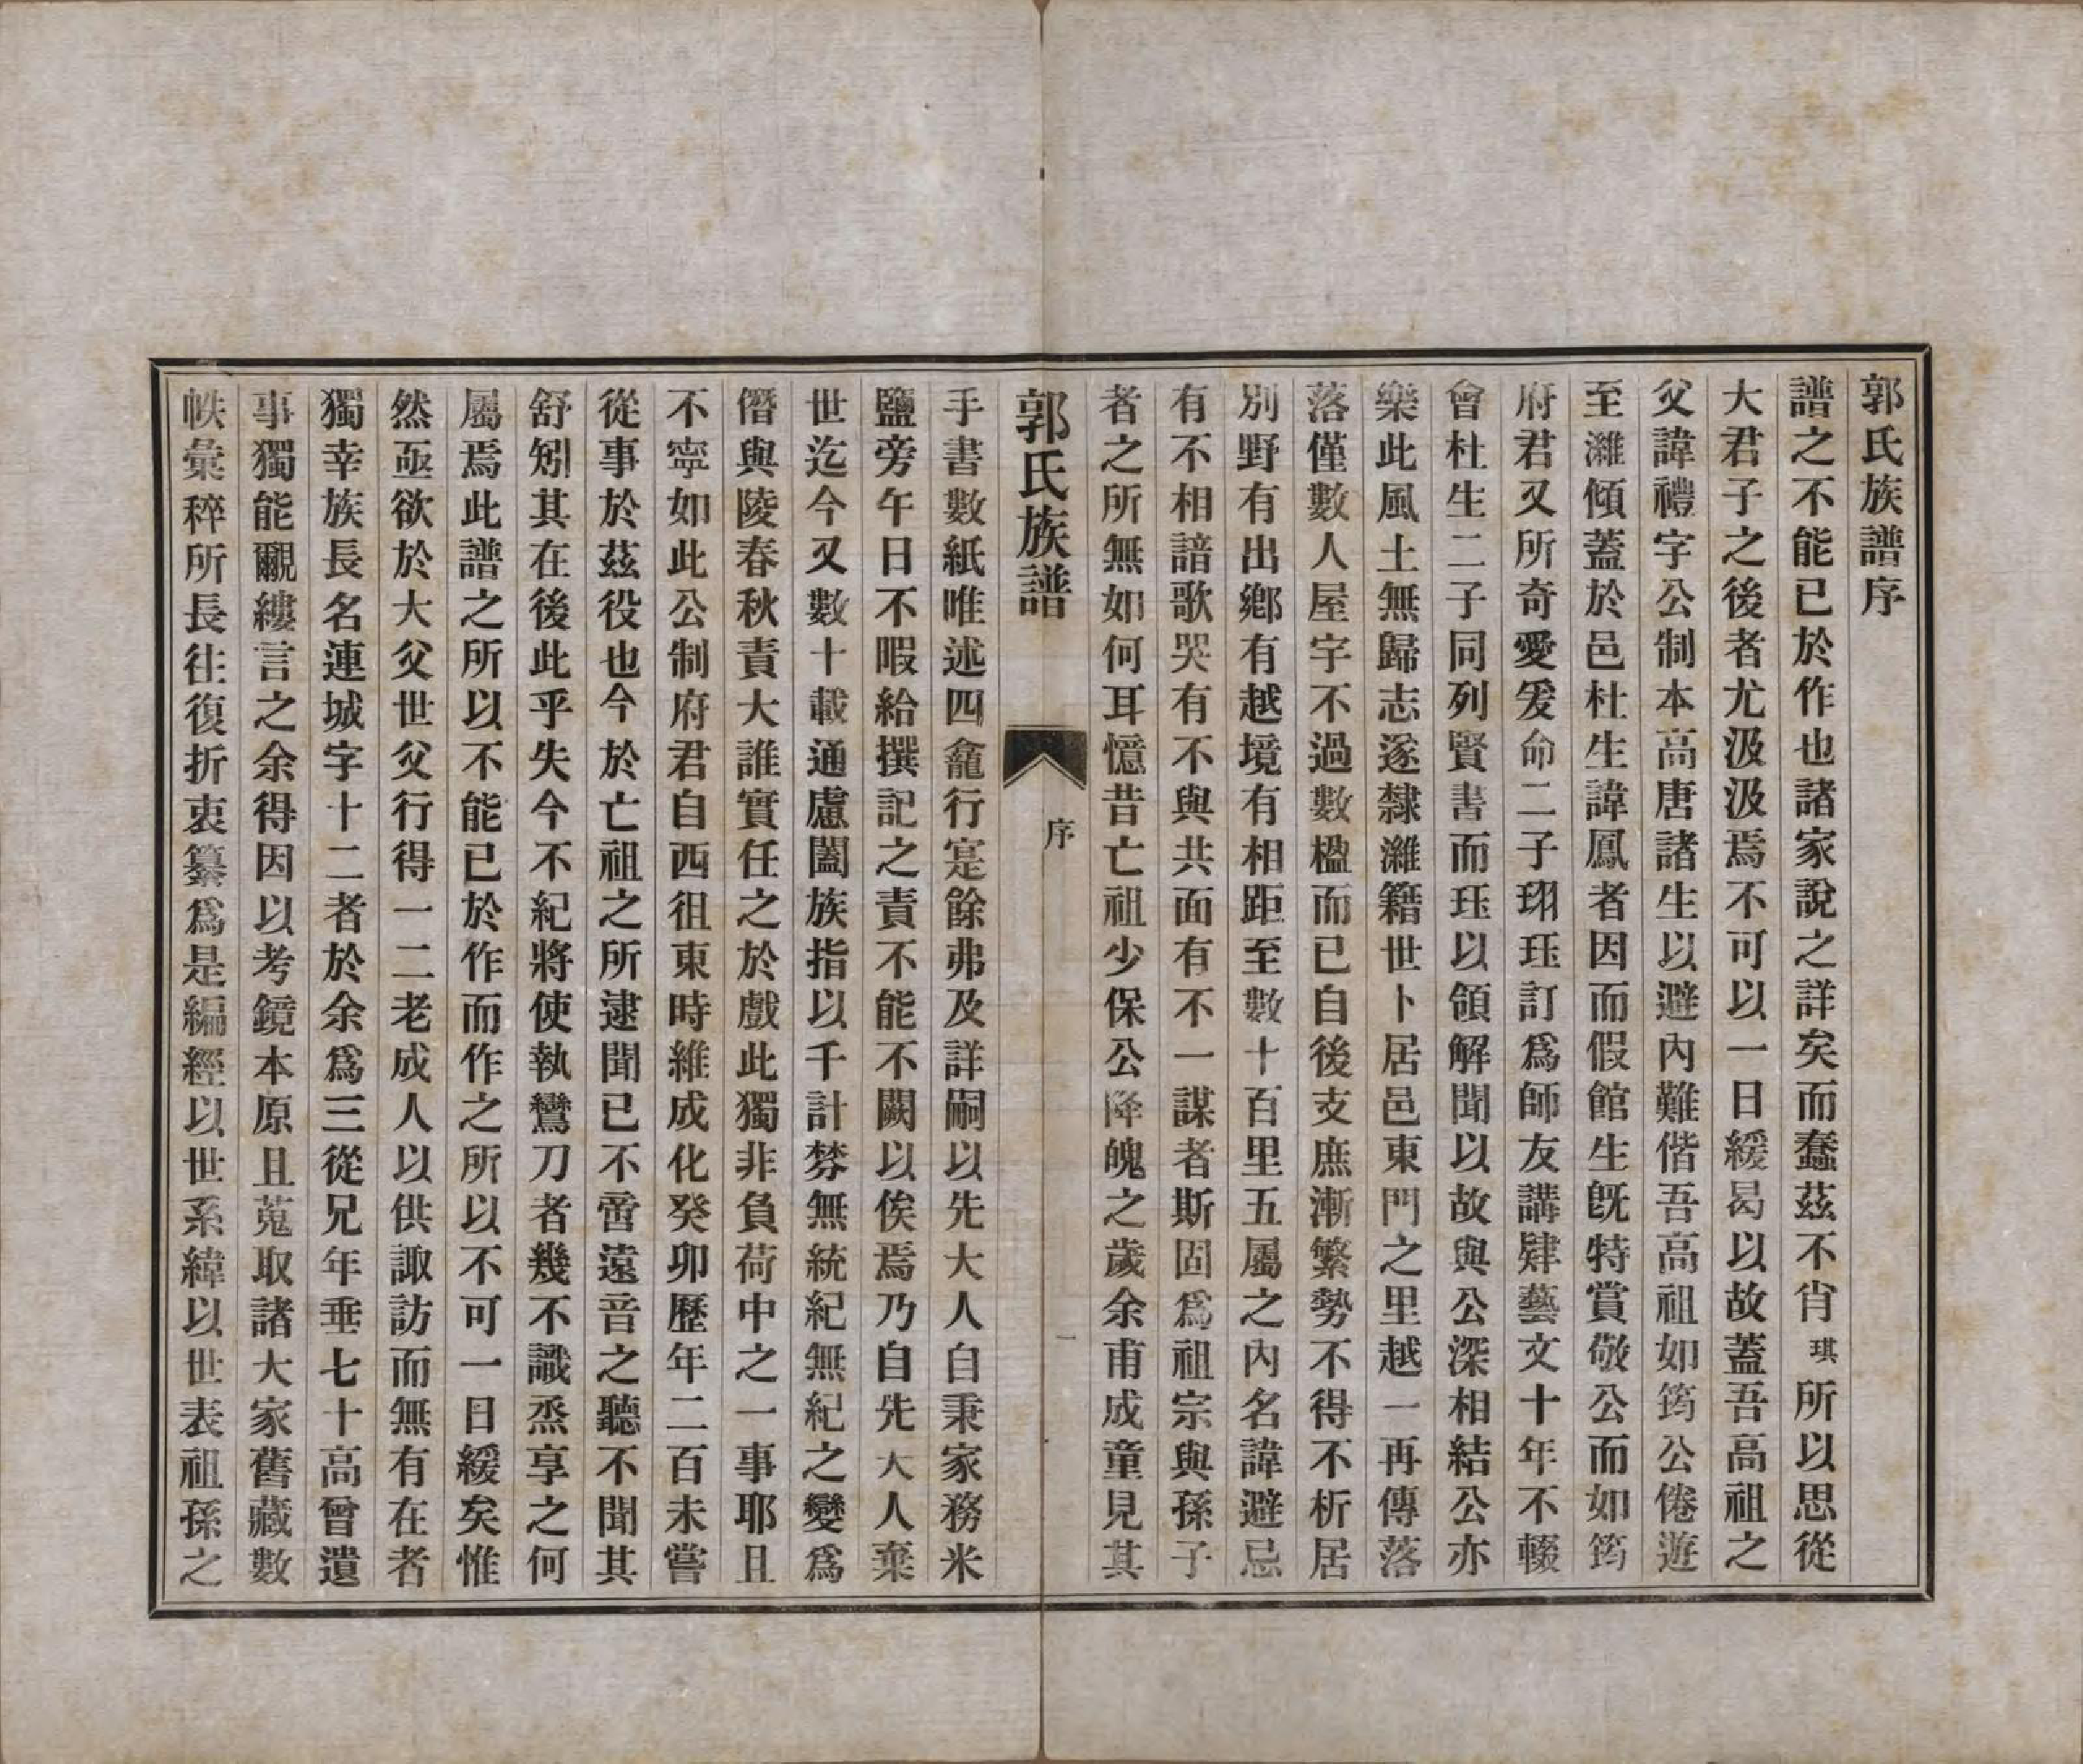 郭氏族譜序
譜之不能已於作也諸家說之詳矣而蠢茲不肖琪所以思從
大君子之後者尤汲汲焉不可以一日緩曷以故蓋吾高祖之
父諱禮字公制本高唐諸生以避內難偕吾高祖如筠公倦遊
至濰傾蓋於邑杜生諱鳳者因而假館生旣特賞敬公而如筠
府君又所奇愛爰命二子珝珏訂爲師友講肄藝文十年不輟
會杜生二子同列賢書而珏以領解聞以故與公深相結公亦
樂此風土無歸志遂隸濰籍世卜居邑東門之里越一再傳落
落僅數人屋字不過數楹而已自後支庶漸繁勢不得不析居
別野有出鄉有越境有相距至數十百里五屬之內名諱避忌
有不相諳歌哭有不與共面有不一謀者斯固爲祖宗與孫子
者之所無如何耳憶昔亡祖少保公降魄之歲余甫成童見其
郭氏族譜
序
一
手書數紙唯述四龕行寔餘弗及詳嗣以先大人自秉家務米
鹽旁午日不暇給撰記之責不能不闕以俟焉乃自先大人棄
世迄今又數十載通慮闔族指以千計棼無統紀無紀之變爲
僭與陵春秋責大誰實任之於戲此獨非負荷中之一事耶且
不寧如此公制府君自西徂東時維成化癸卯歷年二百未嘗
從事於茲役也今於亡祖之所逮聞已不啻遠音之聽不聞其
舒矧其在後此乎失今不紀將使執鸞刀者幾不識烝享之何
屬焉此譜之所以不能已於作而作之所以不可一日緩矣惟
然亟欲於大父世父行得一二老成人以供諏訪而無有在者
獨幸族長名連城字十二者於余爲三從兄年垂七十高曾遺
事獨能覼縷言之余得因以考鏡本原且蒐取諸大家舊藏數
帙彙稡所長往復折衷纂爲是編經以世系緯以世表祖孫之